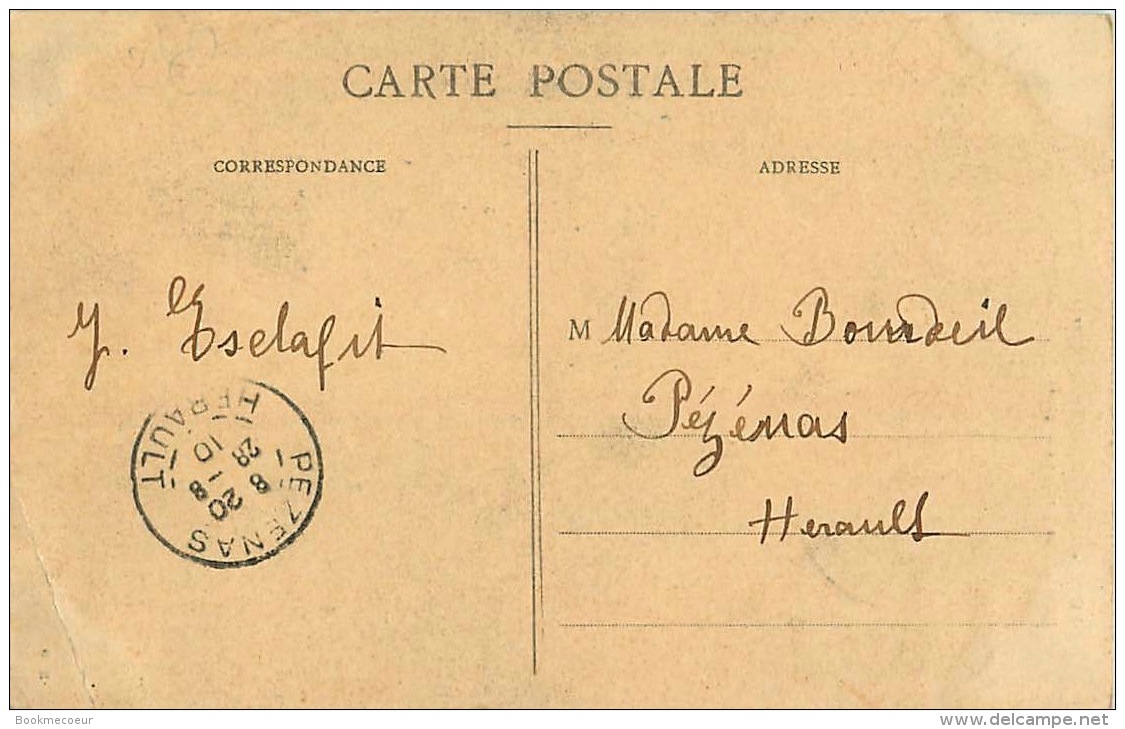 CARTE POSTALE
CORRESPONDANCE
ADRESSE
Y. Esclafit
M Madame Bourdeil
Pézénas
Herault
PEZENAS
HERAULT
8 20
28 - 8
10
Bookmecoeur
www.delcampe.net